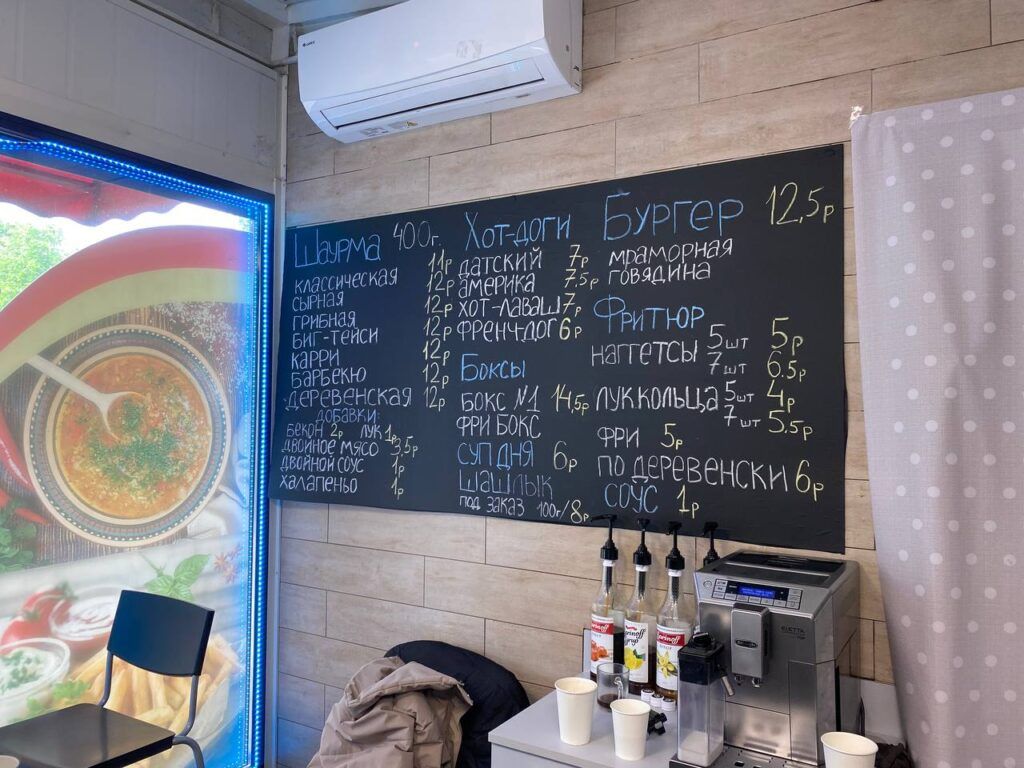 GREE
Шаурма 400г.
классическая 11р
сырная 12р
грибная 12р
биг-тейси 12р
карри 12р
барбекю 12р
деревенская 12р
добавки:
бекон 2р лук 1р
двойное мясо 3,5р
двойной соус 1р
халапеньо 1р
Хот-доги
датский 7р
америка 7,5р
хот-лаваш 7р
френч-дог 6р
Боксы
бокс №1 14,5р
фри бокс
суп дня 6р
шашлык
под заказ 100г/8р
Бургер 12,5р
мраморная
говядина
Фритюр
наггетсы 5шт 5р
7шт 6.5р
лук.кольца 5шт 4р
7шт 5,5р
фри 5р
по деревенски 6р
соус 1р
ELETTA